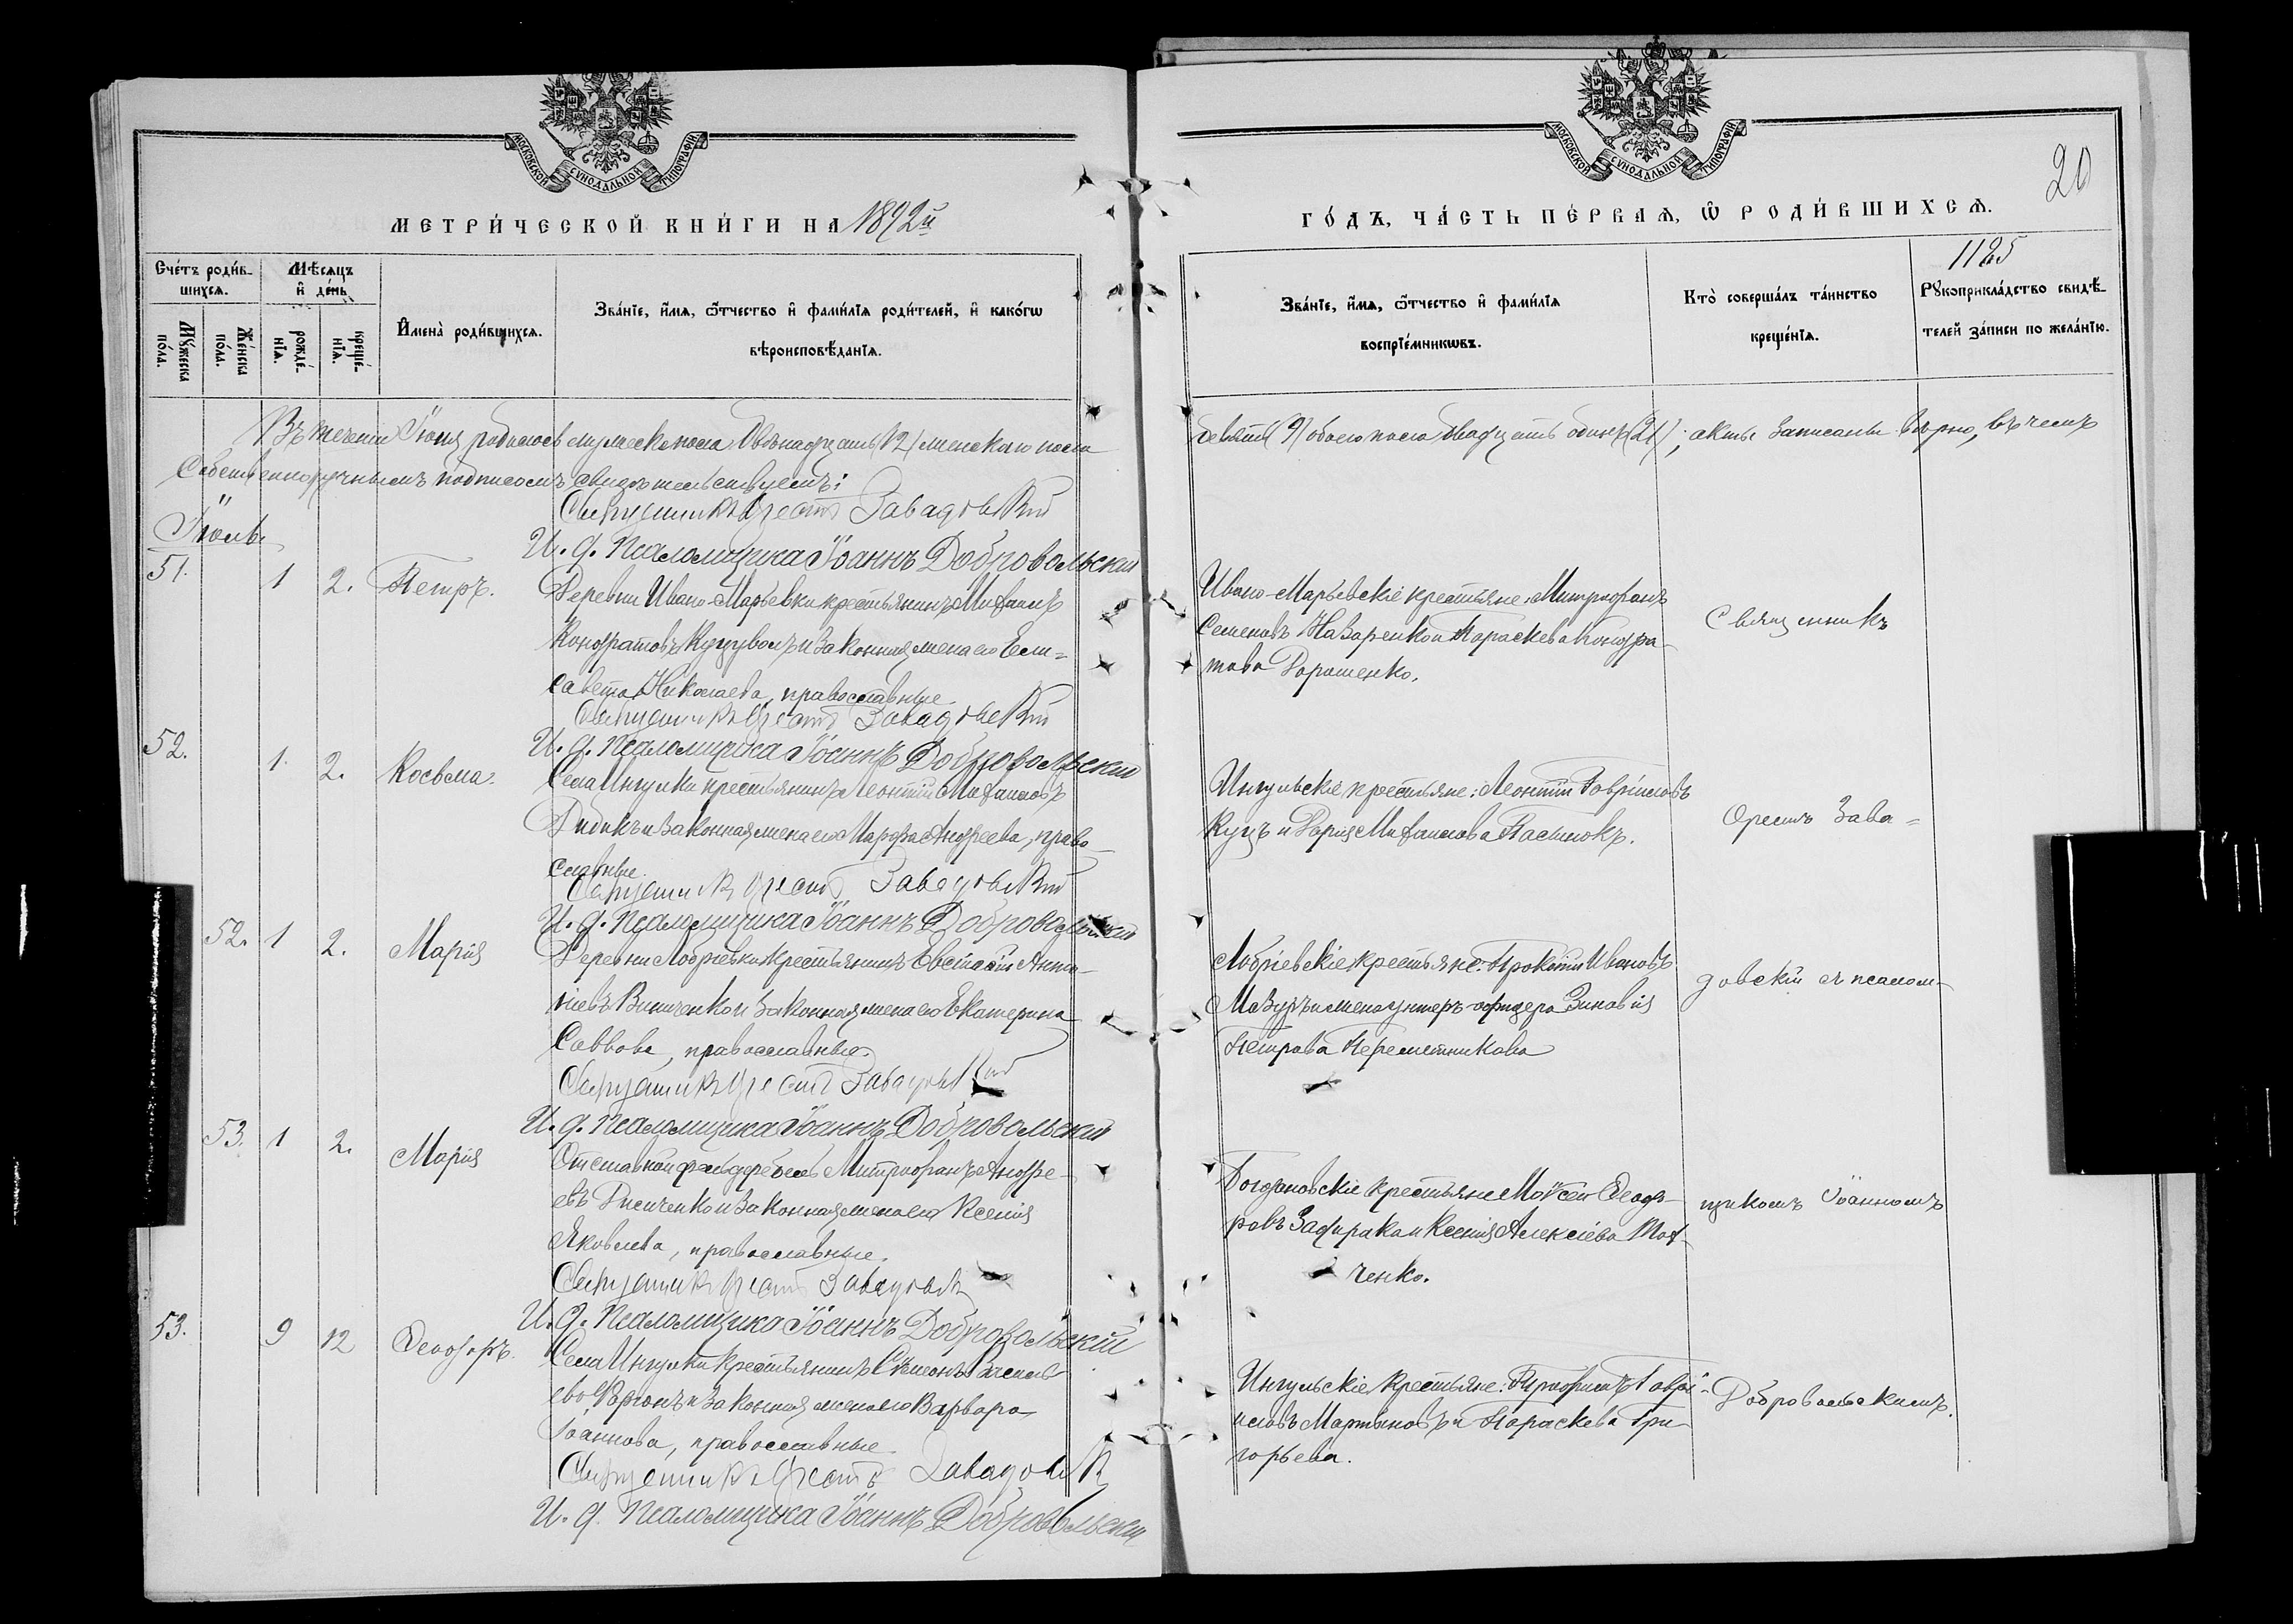 МОСКОВСКОЙ СѴНОДАЛЬНОЙ ТИПОГРАФІИ
МЕТРИ́ЧЕСКОЙ КНИ́ГИ НА 1892й
Сче́тъ роди́в-
шихсѧ.
Мѣсѧцъ
и҆ де́нь
Мꙋ́жеска
по́ла.
Же́нска
по́ла.
рожде́-
нїѧ.
креще́-
нїѧ.
И҆мена̀ роди́вшихсѧ.
Зва́нїе, и҆́мѧ, ѻ҆́тчество и҆ фами́лїѧ роди́телей, и҆ како́гѡ
вѣроисповѣ́данїѧ.
Въ теченіи Іюня родилось мужеска пола двѣнадцать (12) женскаго пола
собственноручнымъ подписомъ свидѣтельствуемъ:
Священникъ Орестъ Завадовскій
И. д. Псаломщика Іоаннъ Добровольскій
Іюль
51. 1 2. Петръ. Деревни Ивано-Марьевки крестьянинъ Михаилъ
Кондратовъ и законная жена его Ели=
савета Николаева, православные
Священникъ Орестъ Завадовскій
И. д. Псаломщика Іоаннъ Добровольскій
52. 1. 2. Косьма. Села Ингулки крестьянинъ Леонтій Михаиловъ
Дидикъ и законная жена его Марфа Андреева, право-
славные.
Священникъ Орестъ Завадовскій
И. д. Псаломщика Іоаннъ Добровольскій
52. 1 2. Марія Деревни Лобріевки крестьянинъ Евстафій
Виниченко и законная жена его Екатерина
Саввова, православные.
Священникъ Орестъ Завадовскій
И. д. Псаломщика Іоаннъ Добровольскій
53. 1 2. Марія Отставной фельдфебель Митрофанъ Андре-
евъ и законная жена его Ксенія
Яковлева, православные.
Священникъ Орестъ Завадовск
И. д. Псаломщика Іоаннъ Добровольскій
53. 9 12 Ѳеодоръ. Села Ингулки крестьянинъ Симеонъ Василь-
евъ и законная жена его Варвара
Іоаннова, православные.
Священникъ Орестъ Завадовск
И. д. Псаломщика Іоаннъ Добровольскій
МОСКОВСКОЙ СѴНОДАЛЬНОЙ ТИПОГРАФІИ
20
ГО́ДЪ, ЧА́СТЬ ПЕ́РВАѦ, Ѡ҆ РОДИ́ВШИХСѦ.
1125
Зва́нїе, и҆́мѧ, ѻ҆́тчество и҆ фами́лїѧ
воспрїе́мникѡвъ.
Кто̀ соверша́лъ та́инство
креще́нїѧ.
Рꙋкоприкла́дство свидѣ́-
телей за́писи по жела́нїю.
девять (9) обоего пола двадцать одинъ (21); акты записаны вѣрно, въ чемъ
Ивано-Марьевскіе крестьяне: Митрофанъ
Семеновъ Назаренко и Параскева Кондра-
това Дорошенко.
Священникъ
Ингульскіе крестьяне: Леонтій Гавриловъ
Куцъ и Дарія Михаилова
Орестъ Зава=
Лобріевскіе крестьяне: Прокопій Ивановъ
Мазуръ и жена унтеръ-офицера Зиновія
Петрова Переметникова
довскій съ псалом-
Богдановскіе крестьяне Моѵсей Ѳеодо-
ровъ и Ксенія Алексіева
ченко.
щикомъ Іоанномъ
Ингульскіе крестьяне: Гавріи-
ловъ Мартыновъ и Параскева Гри-
горьева.
Добровольскимъ.